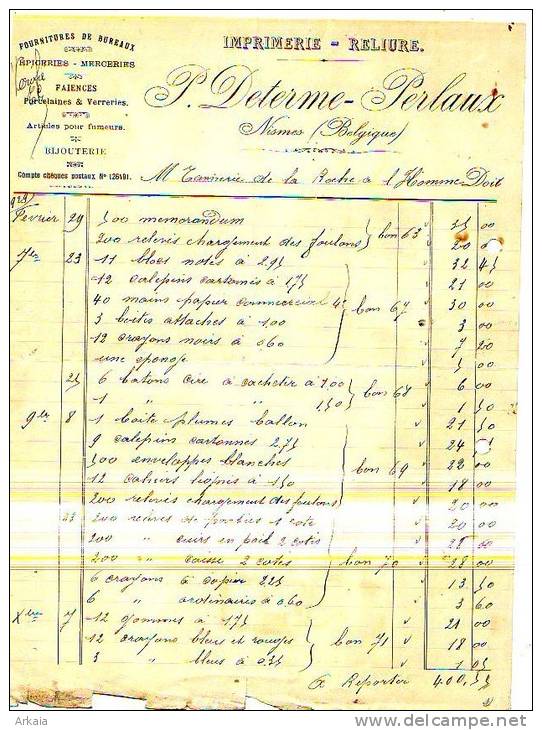 FOURNITURES DE BUREAUX
EPICERIES - MERCERIES
FAIENCES
Porcelaines & Verreries.
Articles pour fumeurs.
BIJOUTERIE
Compte chèques postaux N° 126191.
IMPRIMERIE - RELIURE.
P. Determe-Perlaux
Nismes (Belgique)
M Tannerie de la Roche à l'Homme Doit
Février 29 500 memorandum 25 00
200 relevés chargement des foulons } bon 63 20 00
7bre 23 11 blocs notes à 295 32 45
12 calepins cartonnés à 175 21 00
40 mains papier commercial 4c } bon 67 30 00
3 boites attaches à 1.00 3 00
12 crayons noirs à 0.60 7 20
une éponge 5 00
25 6 batons cire à cacheter à 1.00 } bon 68 6 00
1 " " 1.50 1 50
9bre 8 1 boite plumes ballon
9 calepins cartonnés 275 24
500 enveloppes blanches } bon 69 22 00
12 cahiers lignés à 150 18 00
200 relevés chargement des foulons 20 00
23 200 relevés de 1 coté 20 00
200 " cuirs en poil 2 cotés 28 00
200 " caisse 2 cotés } bon 70 28 00
6 crayons à copier 225 13 50
6 " ordinaires à 060 3 60
Xbre 7 12 gommes à 175 21 00
12 crayons bleus et rouges } bon 71 18 00
3 " bleus à 035 1 05
à Reporter 400,55
Arkaïa
www.delcampe.net